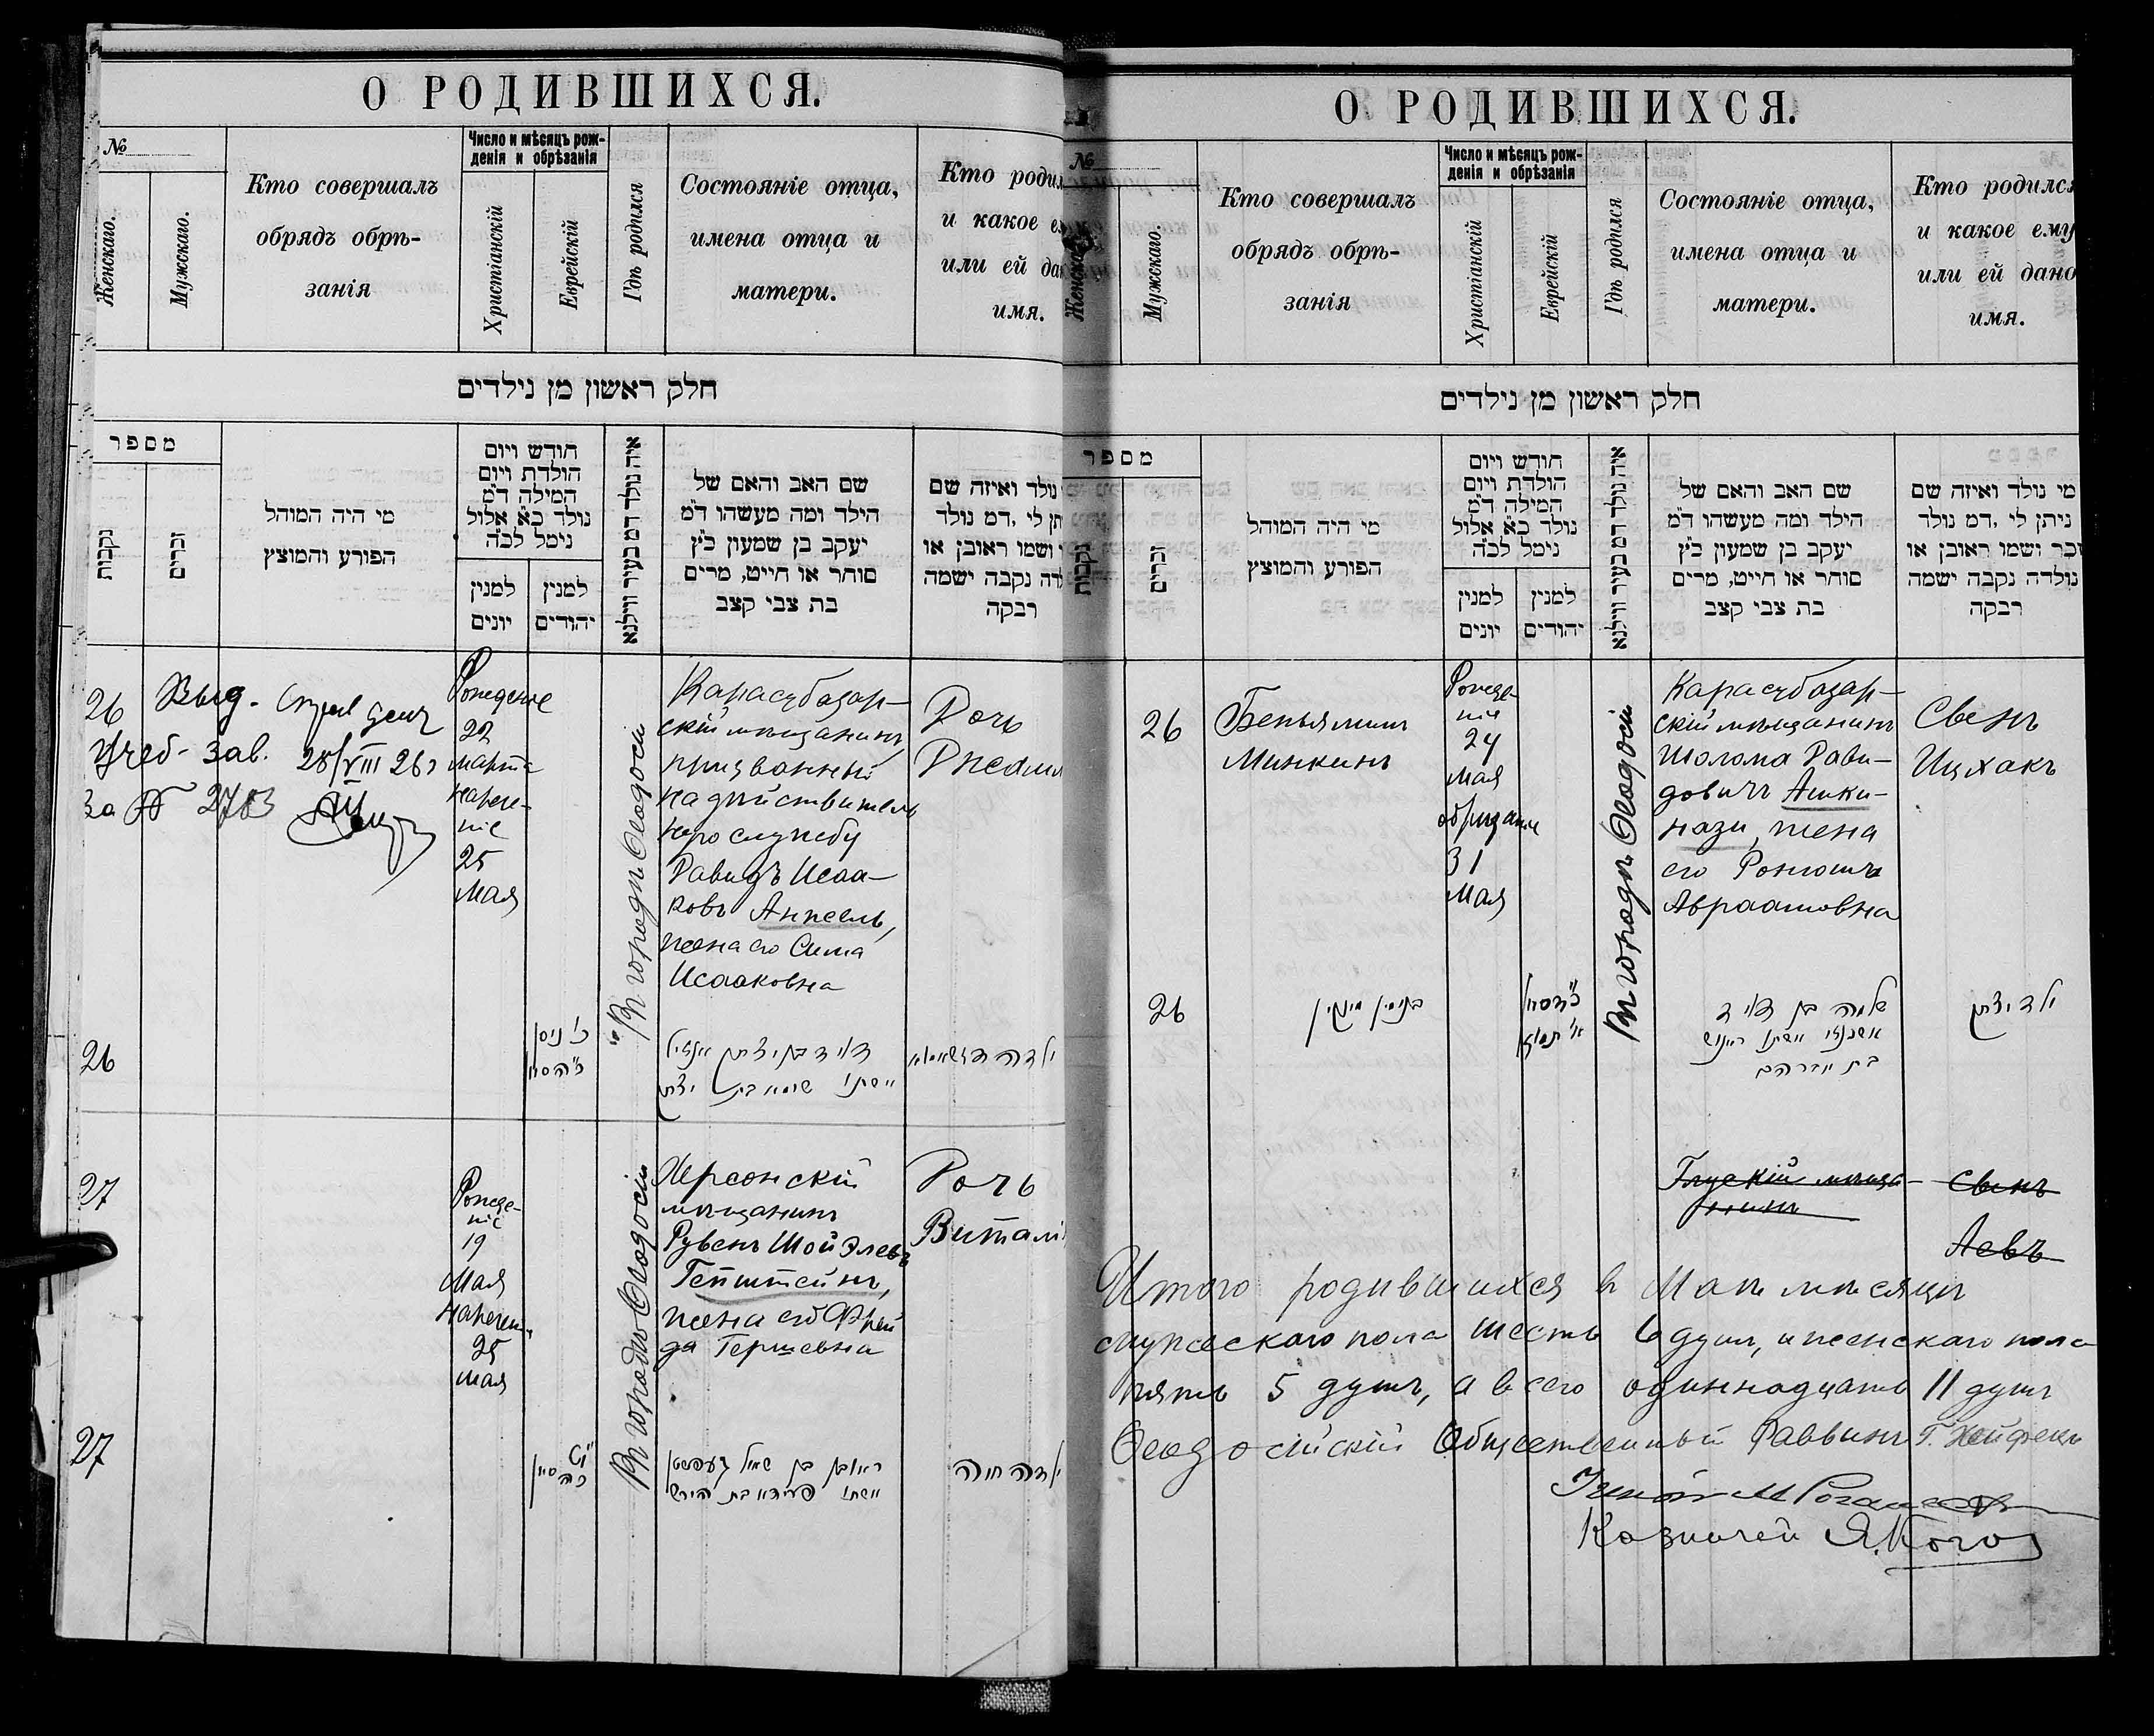 О РОДИВШИХСЯ.
№
Женскаго.
Мужскаго.
Кто совершалъ
обрядъ обрѣ-
занія
Число и мѣсяцъ рож-
денія и обрѣзанія
Христіанскій
Еврейскій
Гдѣ родился
Состояніе отца,
имена отца и
матери.
Кто родил
и какое е
или ей да
имя.
חלק ראשון מן נילדים
מספר
נקבות
זכרים
מי היה המוהל
הפורע והמוצץ
חודש ויום
הולדת ויום
המילה ד״מ
נולד כ״א אלול
נימל לכ״ה
למנין
יונים
למנין
יהודים
איה נולד דמ בעיר ווילנא
שם האב והאם של
הילד ומה מעשהו ד״מ
יעקב בן שמעון כ״ץ
סוחר או חייט, מרים
בת צבי קצב
נולד ואיזה שם
תן לי ,דמ נולד
ושמו ראובן או
לדה נקבה ישמה
רבקה
26
Выд.
учеб- зав. 28/VIII 26 г
За № 2783
Рождение
22
марта
нарече-
ніе
25
Мая
Въ городѣ Ѳеодосіи
Карасубазар-
скій мѣщанинъ,
призванный
на дѣйствитель
ную службу
Давидъ Исаа-
ковъ Анжель,
жена его Сима
Исааковна
Дочь
26
כ״ ניסן
דוד בן יצחק אנזיל
אשתו שימא בת יצחק
ילדה
27
Рожде-
ніе
19
Мая
наречені
25
мая
Въ городѣ Ѳеодосіи
Херсонскій
мѣщанинъ
Рувенъ Шойлевъ
Гепштейнъ,
жена его Фрей
да Гершевна
Дочь
Витали
27
ראובן בן שאול געפשטן
אשתו פרידא בת הירש
ילדה חוה
О РОДИВШИХСЯ.
№
Женскаго
Мужскаго.
Кто совершалъ
обрядъ обрѣ-
занія
Число и мѣсяцъ рож-
денія и обрѣзанія
Христіанскій
Еврейскій
Гдѣ родился
Состояніе отца,
имена отца и
матери.
Кто родился
и какое ему
или ей дано
имя.
חלק ראשון מן נילדים
מספר
נקבות
זכרים
מי היה המוהל
הפורע והמוצץ
חודש ויום
הולדת ויום
המילה ד״מ
נולד כ״א אלול
נימל לכ״ה
למנין
יונים
למנין
יהודים
איה נולד דמ בעיר ווילנא
שם האב והאם של
הילד ומה מעשהו ד״מ
יעקב בן שמעון כ״ץ
סוחר או חייט, מרים
בת צבי קצב
מי נולד ואיזה שם
ניתן לי ,דמ נולד
זכר ושמו ראובן או
נולדה נקבה ישמה
רבקה
26
Беньяминъ
Минкинъ
Рожде-
ніе
24
мая
обрѣзаніе
31
мая
Въ городѣ Ѳеодосіи
Карасубазар-
скій мѣщанинъ
Шолома Дави-
довичъ Ашки-
нази, жена
его
Авраамовна
Сынъ
Ицхакъ
26
בנימין מינקין
שלמה בן דוד
אשכנזי אשתו
בת אברהם
ילד יצחק
мѣща-
нинъ
Сынъ
Левъ
Итого родившихся въ Маѣ мѣсяцѣ
мужескаго пола шесть 6 душъ, и женскаго пола
пять 5 душъ, а всего одиннадцать 11 душъ
Ѳеодосійскій Общественный Раввинъ Г. Хейфецъ
Казначей Я. Кого